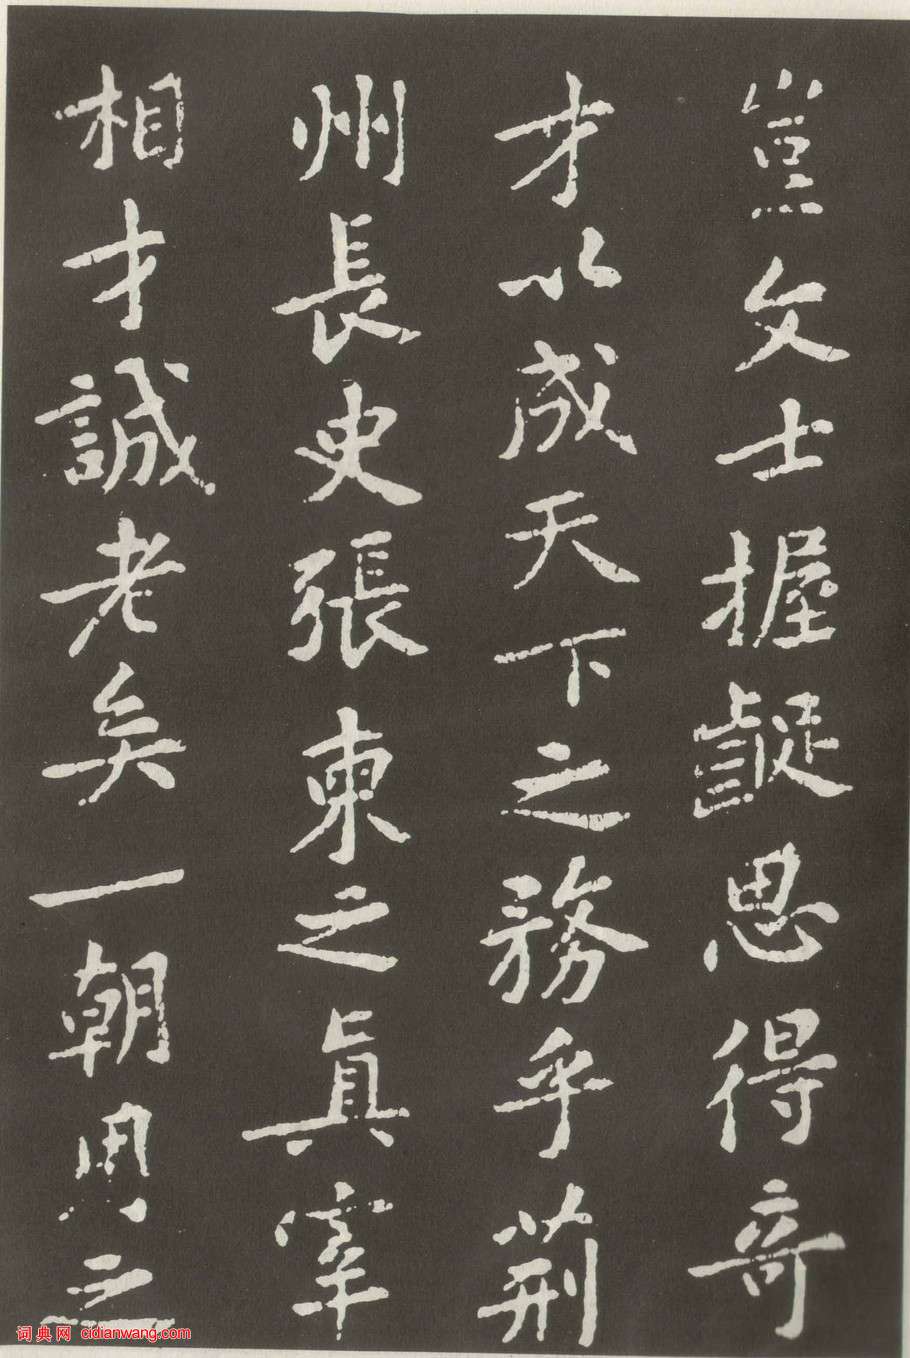 豈文士握齪思得奇
才以成天下之務乎荊
州長史張柬之真宰
相才誠老矣一朝用之
词典网 cidianwang.com